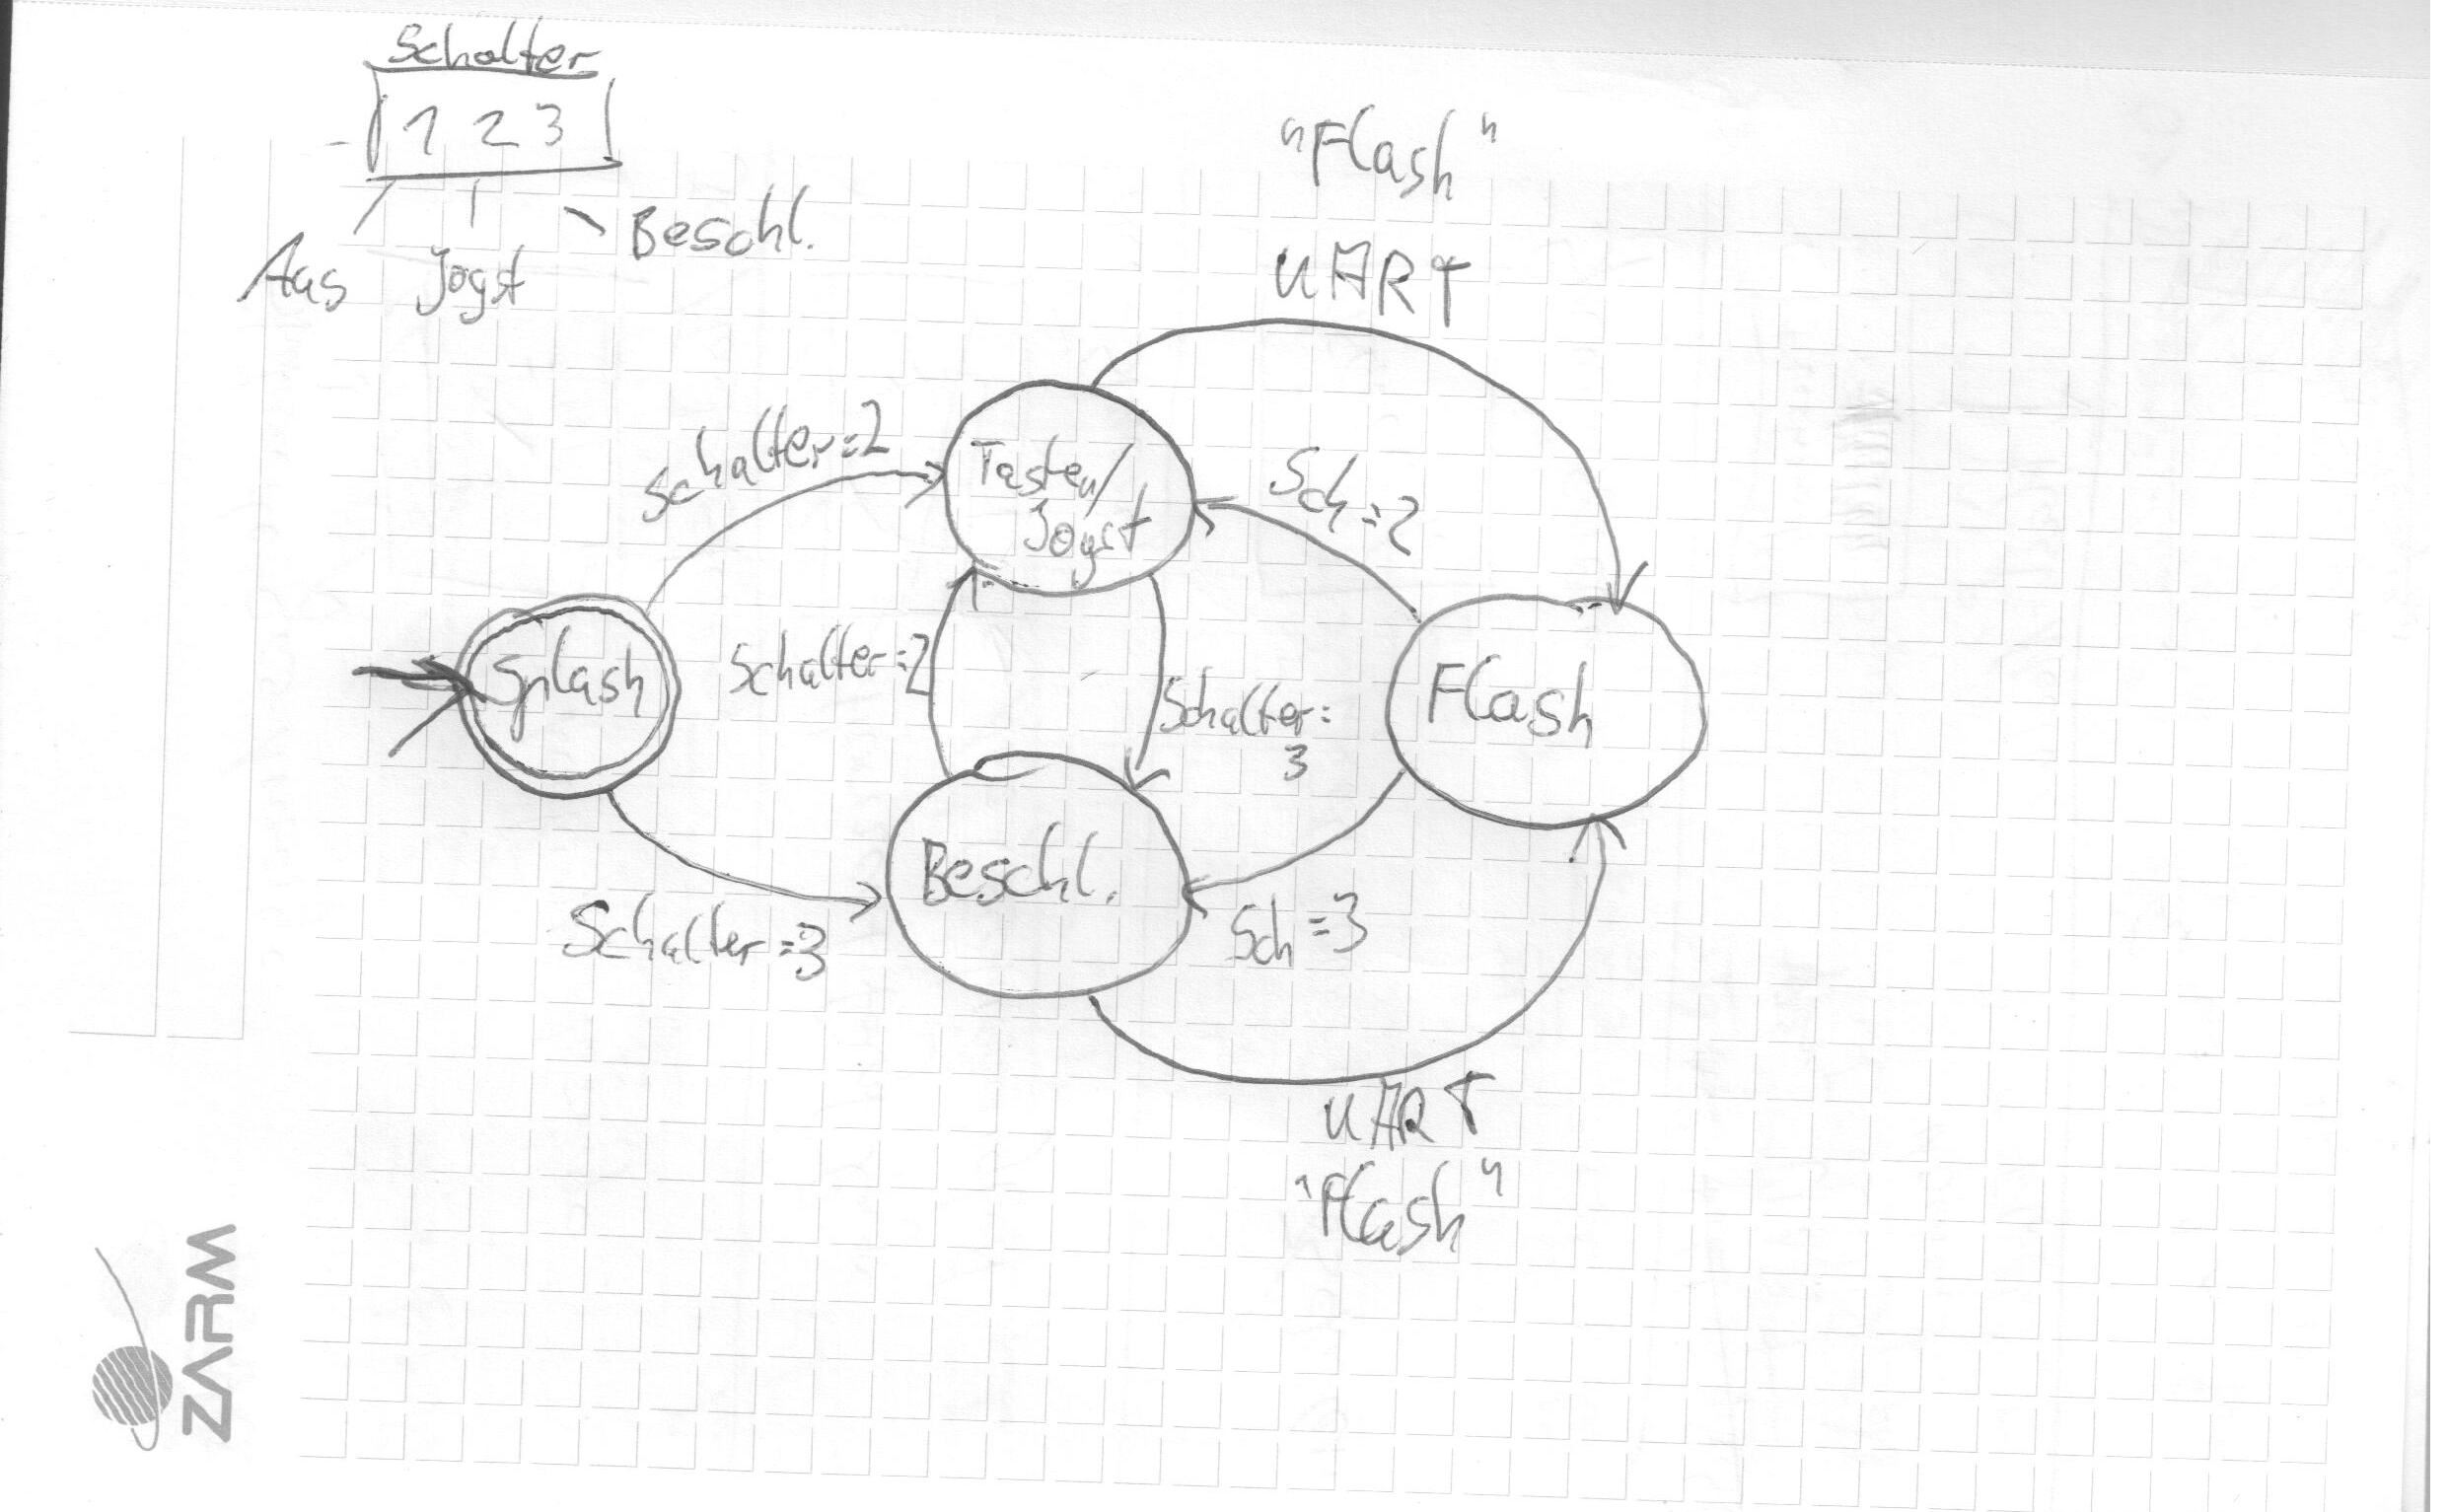 Schalter
1 2 3
Aus Joyst Beschl.
"Flash"
UART
Schalter=2
Tasten/
Joyst
Sch=2
Splash
Schalter=2
Schalter=
3
Flash
Beschl.
Schalter=3
Sch=3
UART
"Flash"
ZARM